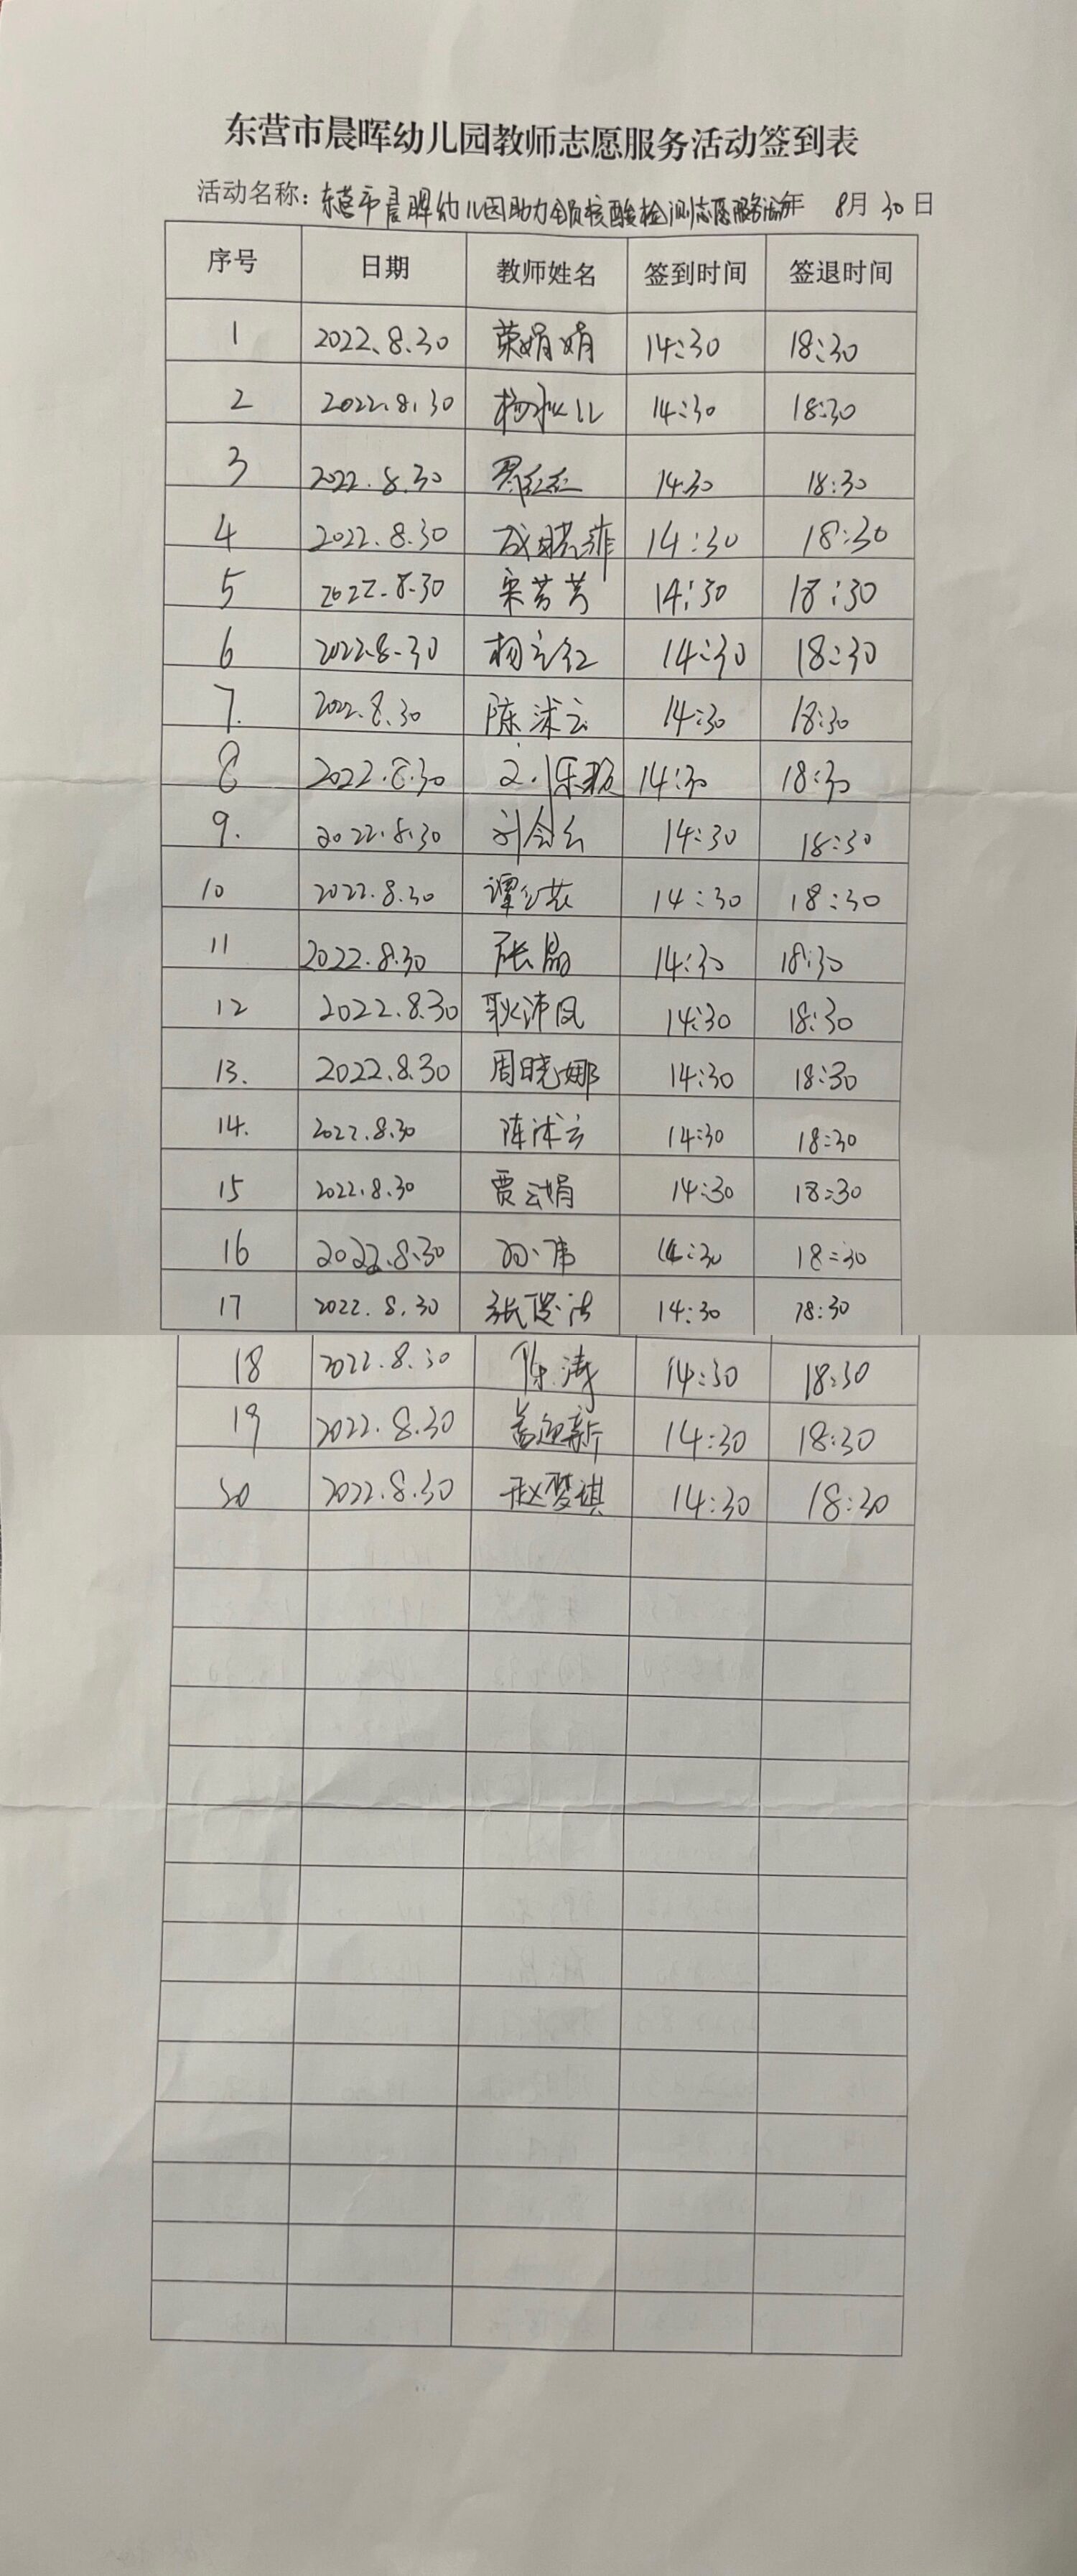 东营市晨晖幼儿园教师志愿服务活动签到表
活动名称：东营市晨晖幼儿园助力全员核酸检测志愿服务活动年 8月30日
序号 日期 教师姓名 签到时间 签退时间
1 2022.8.30 荣娟娟 14:30 18:30
2 2022.8.30 杨秋儿 14:30 18:30
3 2022.8.30 14:30 18:30
4 2022.8.30 14:30 18:30
5 2022.8.30 宋芳芳 14:30 18:30
6 2022.8.30 杨立红 14:30 18:30
7. 2022.8.30 陈沭云 14:30 18:30
8 2022.8.30 14:30 18:30
9. 2022.8.30 刘会云 14:30 18:30
10 2022.8.30 14:30 18:30
11 2022.8.30 张晶 14:30 18:30
12 2022.8.30 耿沛凤 14:30 18:30
13. 2022.8.30 周晓娜 14:30 18:30
14. 2022.8.30 陈沭云 14:30 18:30
15 2022.8.30 贾云娟 14:30 18:30
16 2022.8.30 14:30 18:30
17 2022.8.30 14:30 18:30
18 2022.8.30 陈涛 14:30 18:30
19 2022.8.30 盖迎新 14:30 18:30
20 2022.8.30 赵梦祺 14:30 18:30